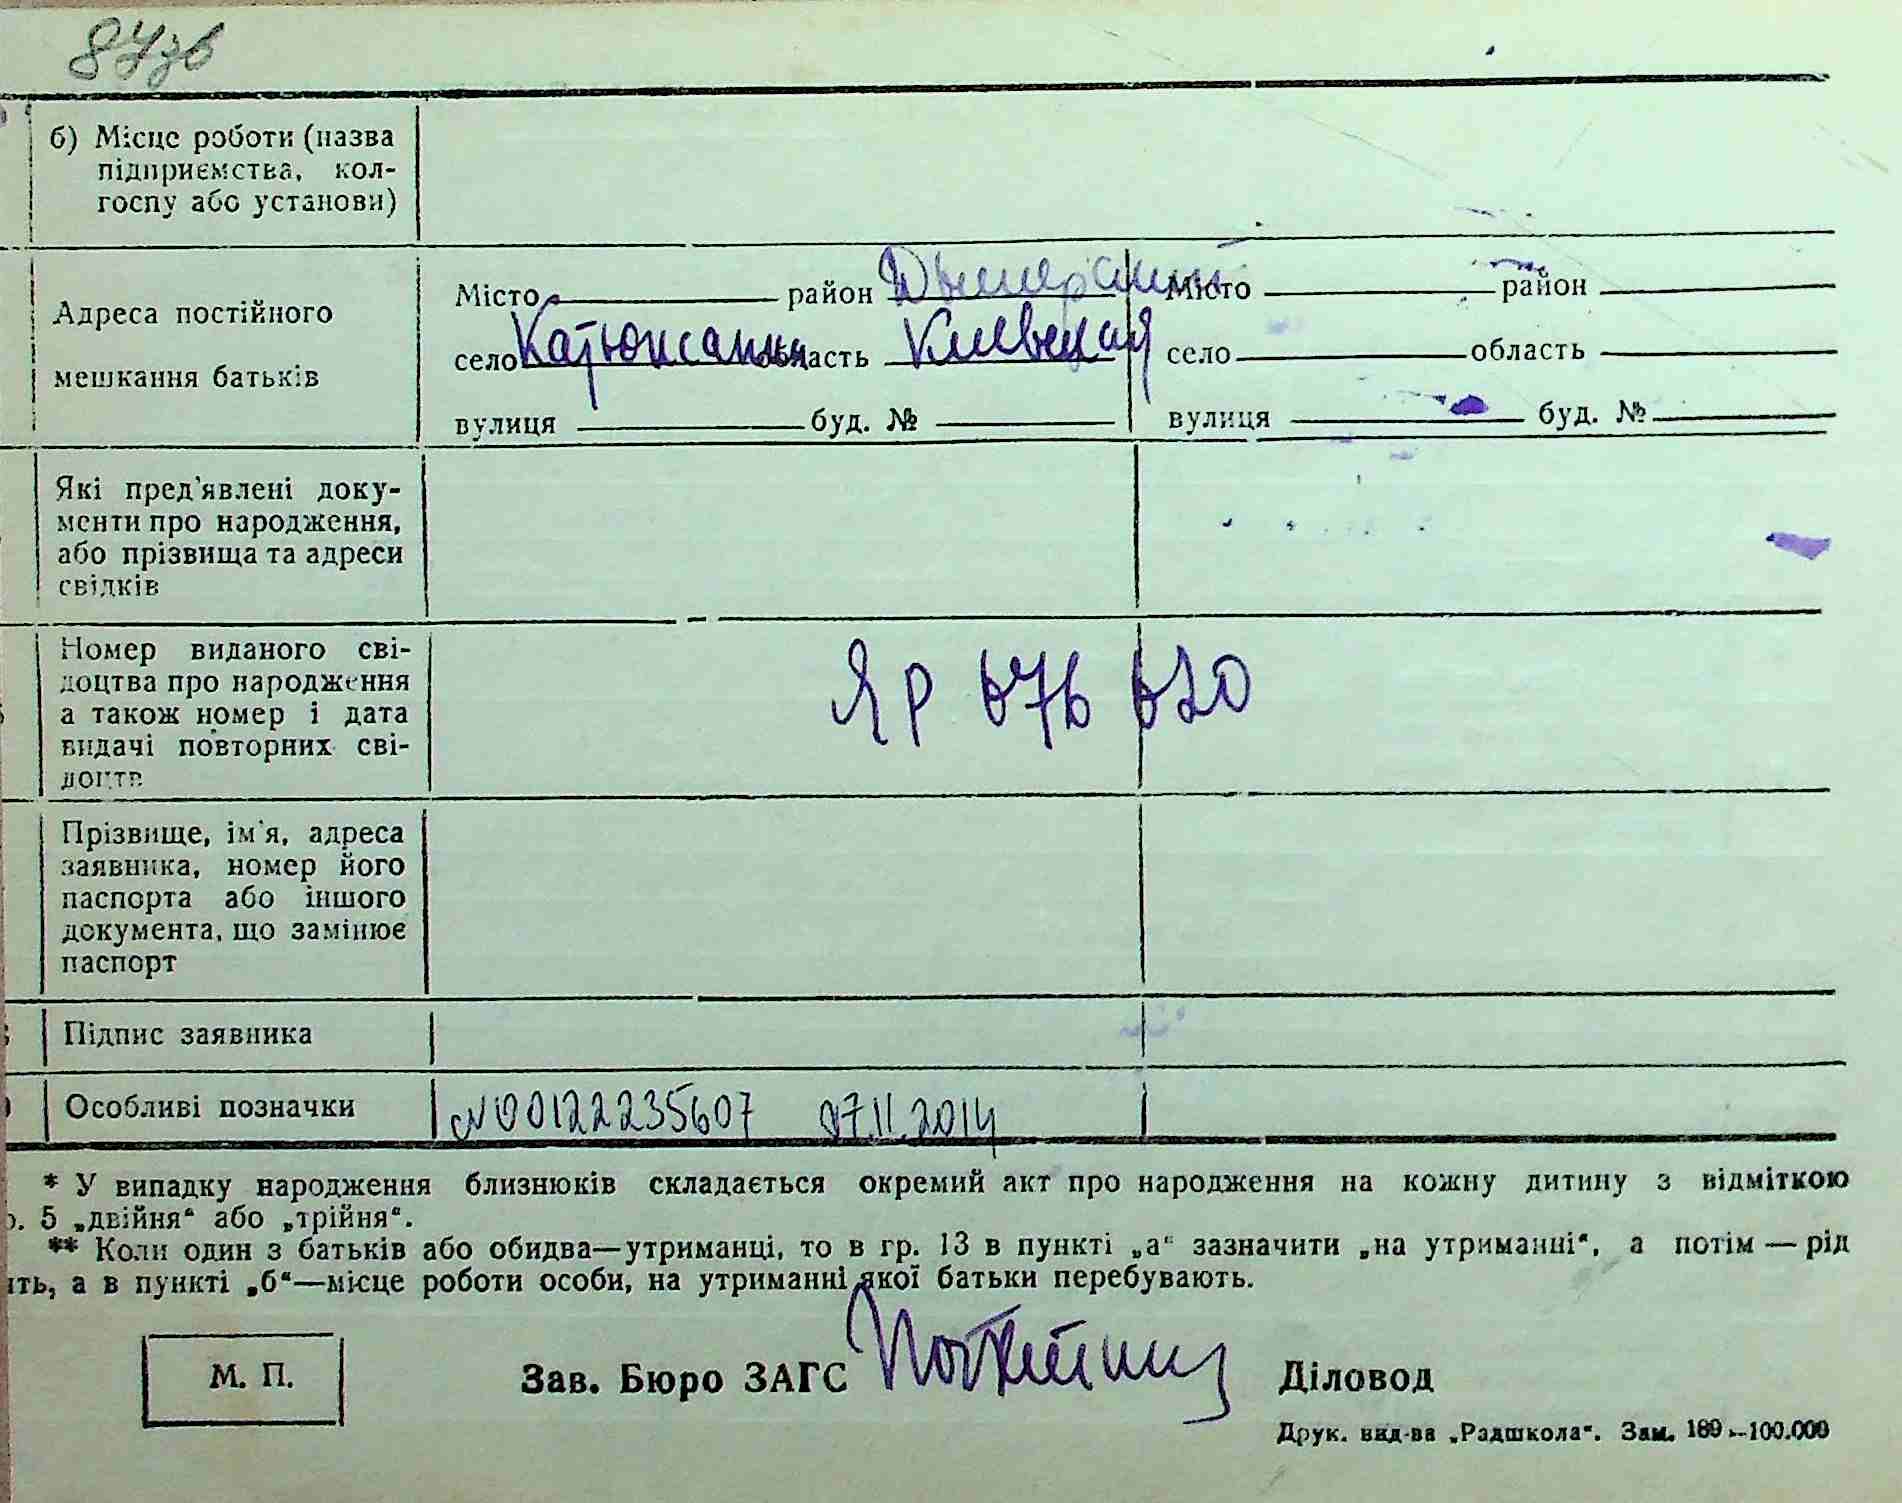 87зв
б) Місце роботи (назва
підприємства, кол-
госпу або установи)
Адреса постійного
мешкання батьків
Місто район Дымерский
село Катюжанка область Киевская
вулиця буд. №
Місто район
село область
вулиця буд. №
Які пред'явлені доку-
менти про народження,
або прізвища та адреси
свідків
Номер виданого сві-
доцтва про народження
а також номер і дата
видачі повторних сві-
доцтв
ЯР 676 620
Прізвище, ім'я, адреса
заявника, номер його
паспорта або іншого
документа, що замінює
паспорт
Підпис заявника
Особливі позначки
№00122235607 07.11.2014
* У випадку народження близнюків складається окремий акт про народження на кожну дитину з відміткою
р. 5 „двійня“ або „трійня“.
** Коли один з батьків або обидва—утриманці, то в гр. 13 в пункті „а“ зазначити „на утриманні“, а потім — рід
ть, а в пункті „б“—місце роботи особи, на утриманні якої батьки перебувають.
М. П.
Зав. Бюро ЗАГС
Діловод
Друк. вид-ва „Радшкола“. Зам. 189—100.000